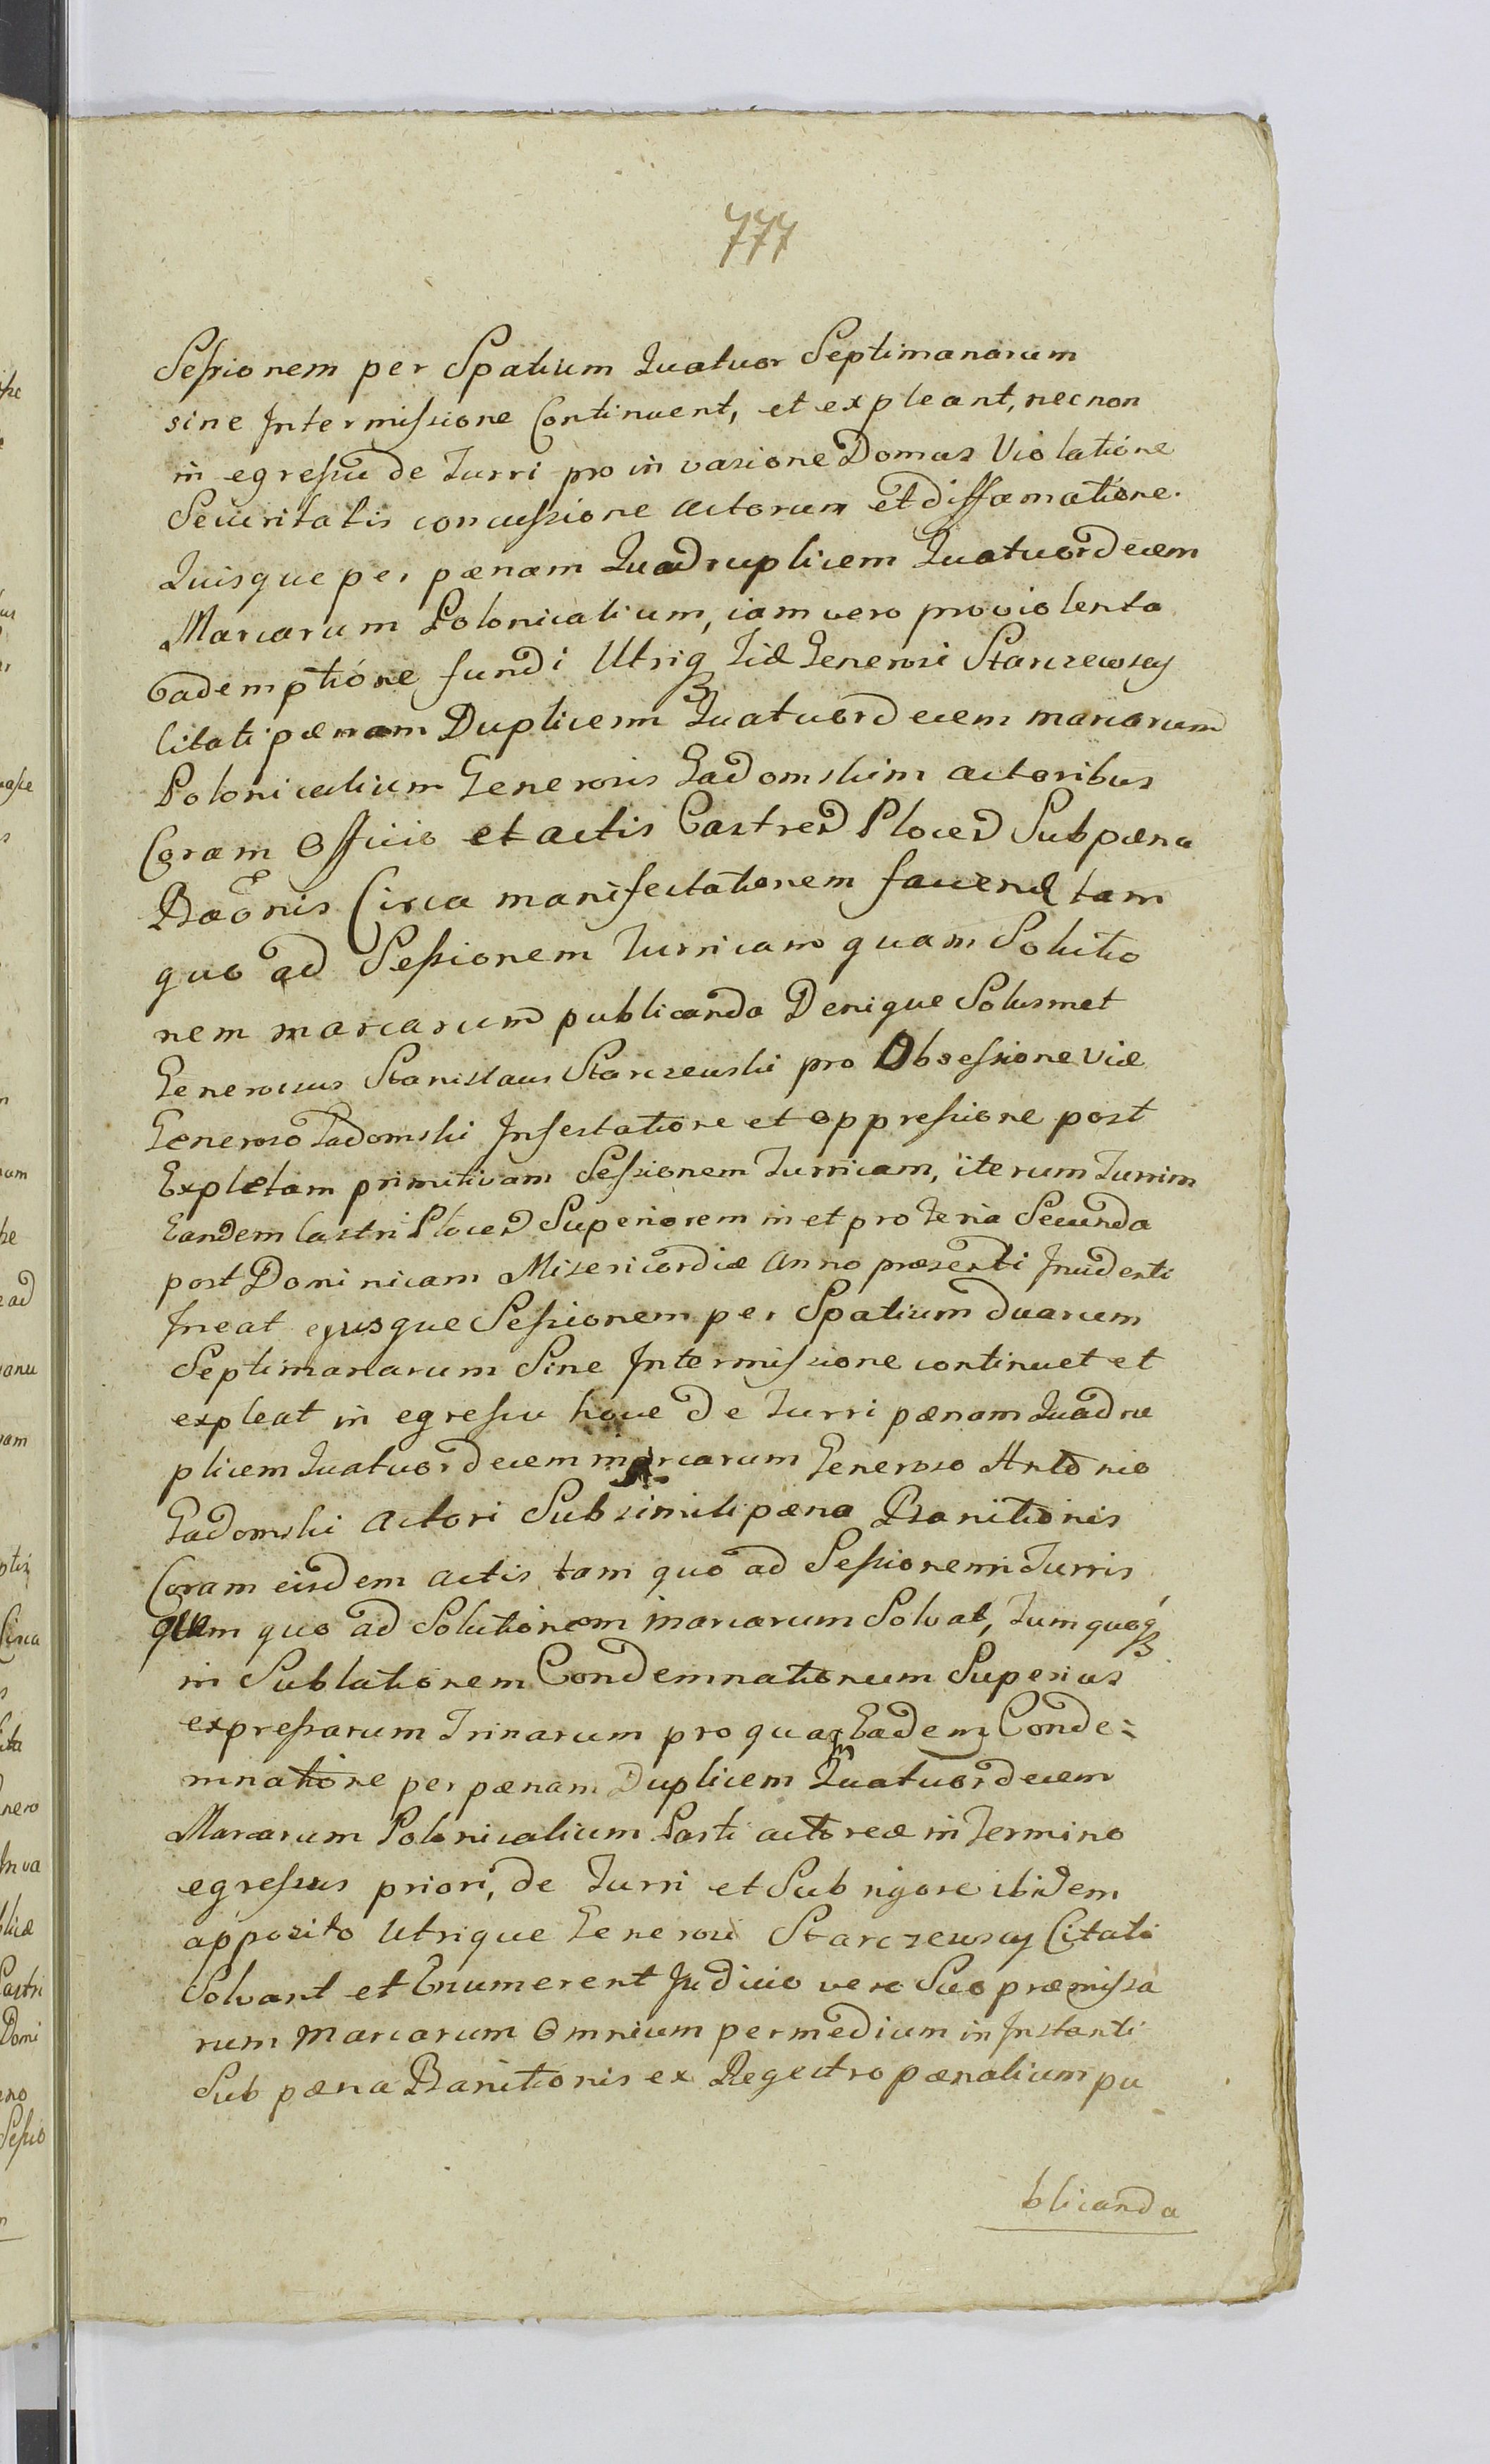 777
Sessionem per Spatium Quatuor Septimanarum
sine Intermissione Continuent, et expleant, necnon
in egressu de Turri pro invasione Domus Violatione
Securitatis concussione Actorum et diffamatione
Quisque per pænam Quadruplicem Quatuordecem
Marcarum Polonicalium, iam vero pro violenta
ademptione fundi Utriq Generosi Starczewscy
Citati pænam Duplicem Quatuordecem marcarum
Polonicalium Generosis Gadomskim actoribus
Coram Officio et actis Castren Plocen Sub pæna
Baonis Circa manifestationem faciend tam
quo ad Sessionem Turricam quam Solutio
nem marcarum publicanda Denique Solusmet
Generosus Stanislaus Starczewski pro Obsessione Viæ
Generoso Gadomski Infestatione et oppressione post
Expletam primitivam Sessionem Turricam, iterum Turrim
Eandem Castri Plocen Superiorem in et pro Feria Secunda
post Dominicam Misericordiæ Anno præsenti Incidenti
Ineat ejusque Sessionem per Spatium duarum
Septimanarum Sine Intermissione continuet et
expleat in egressu hocce de Turri pænam Quadru
plicem Quatuordecem marcarum Generoso Antonio
Gadomski Actori Sub simili pæna Banitionis
Coram eisdem actis tam quo ad Sessionem Turris
quam quo ad Solutionem marcarum Solvat, Tum quoq
in Sublationem Condemnationum Superius
expressarum Trinarum pro qua Eadem Conde=
mnatione per pænam Duplicem Quatuordecem
Marcarum Polonicalium Parti actoreæ in Termino
egressus priori, de Turri et Sub rigore ibidem
apposito Utrique Generosi Starczewscy Citati
Solvant et Enumerent Judicio vero Suo præmissa
rum Marcarum Omnium per medium in Instanti
Sub pæna Banitionis ex Regestro pænalium pu
blicanda